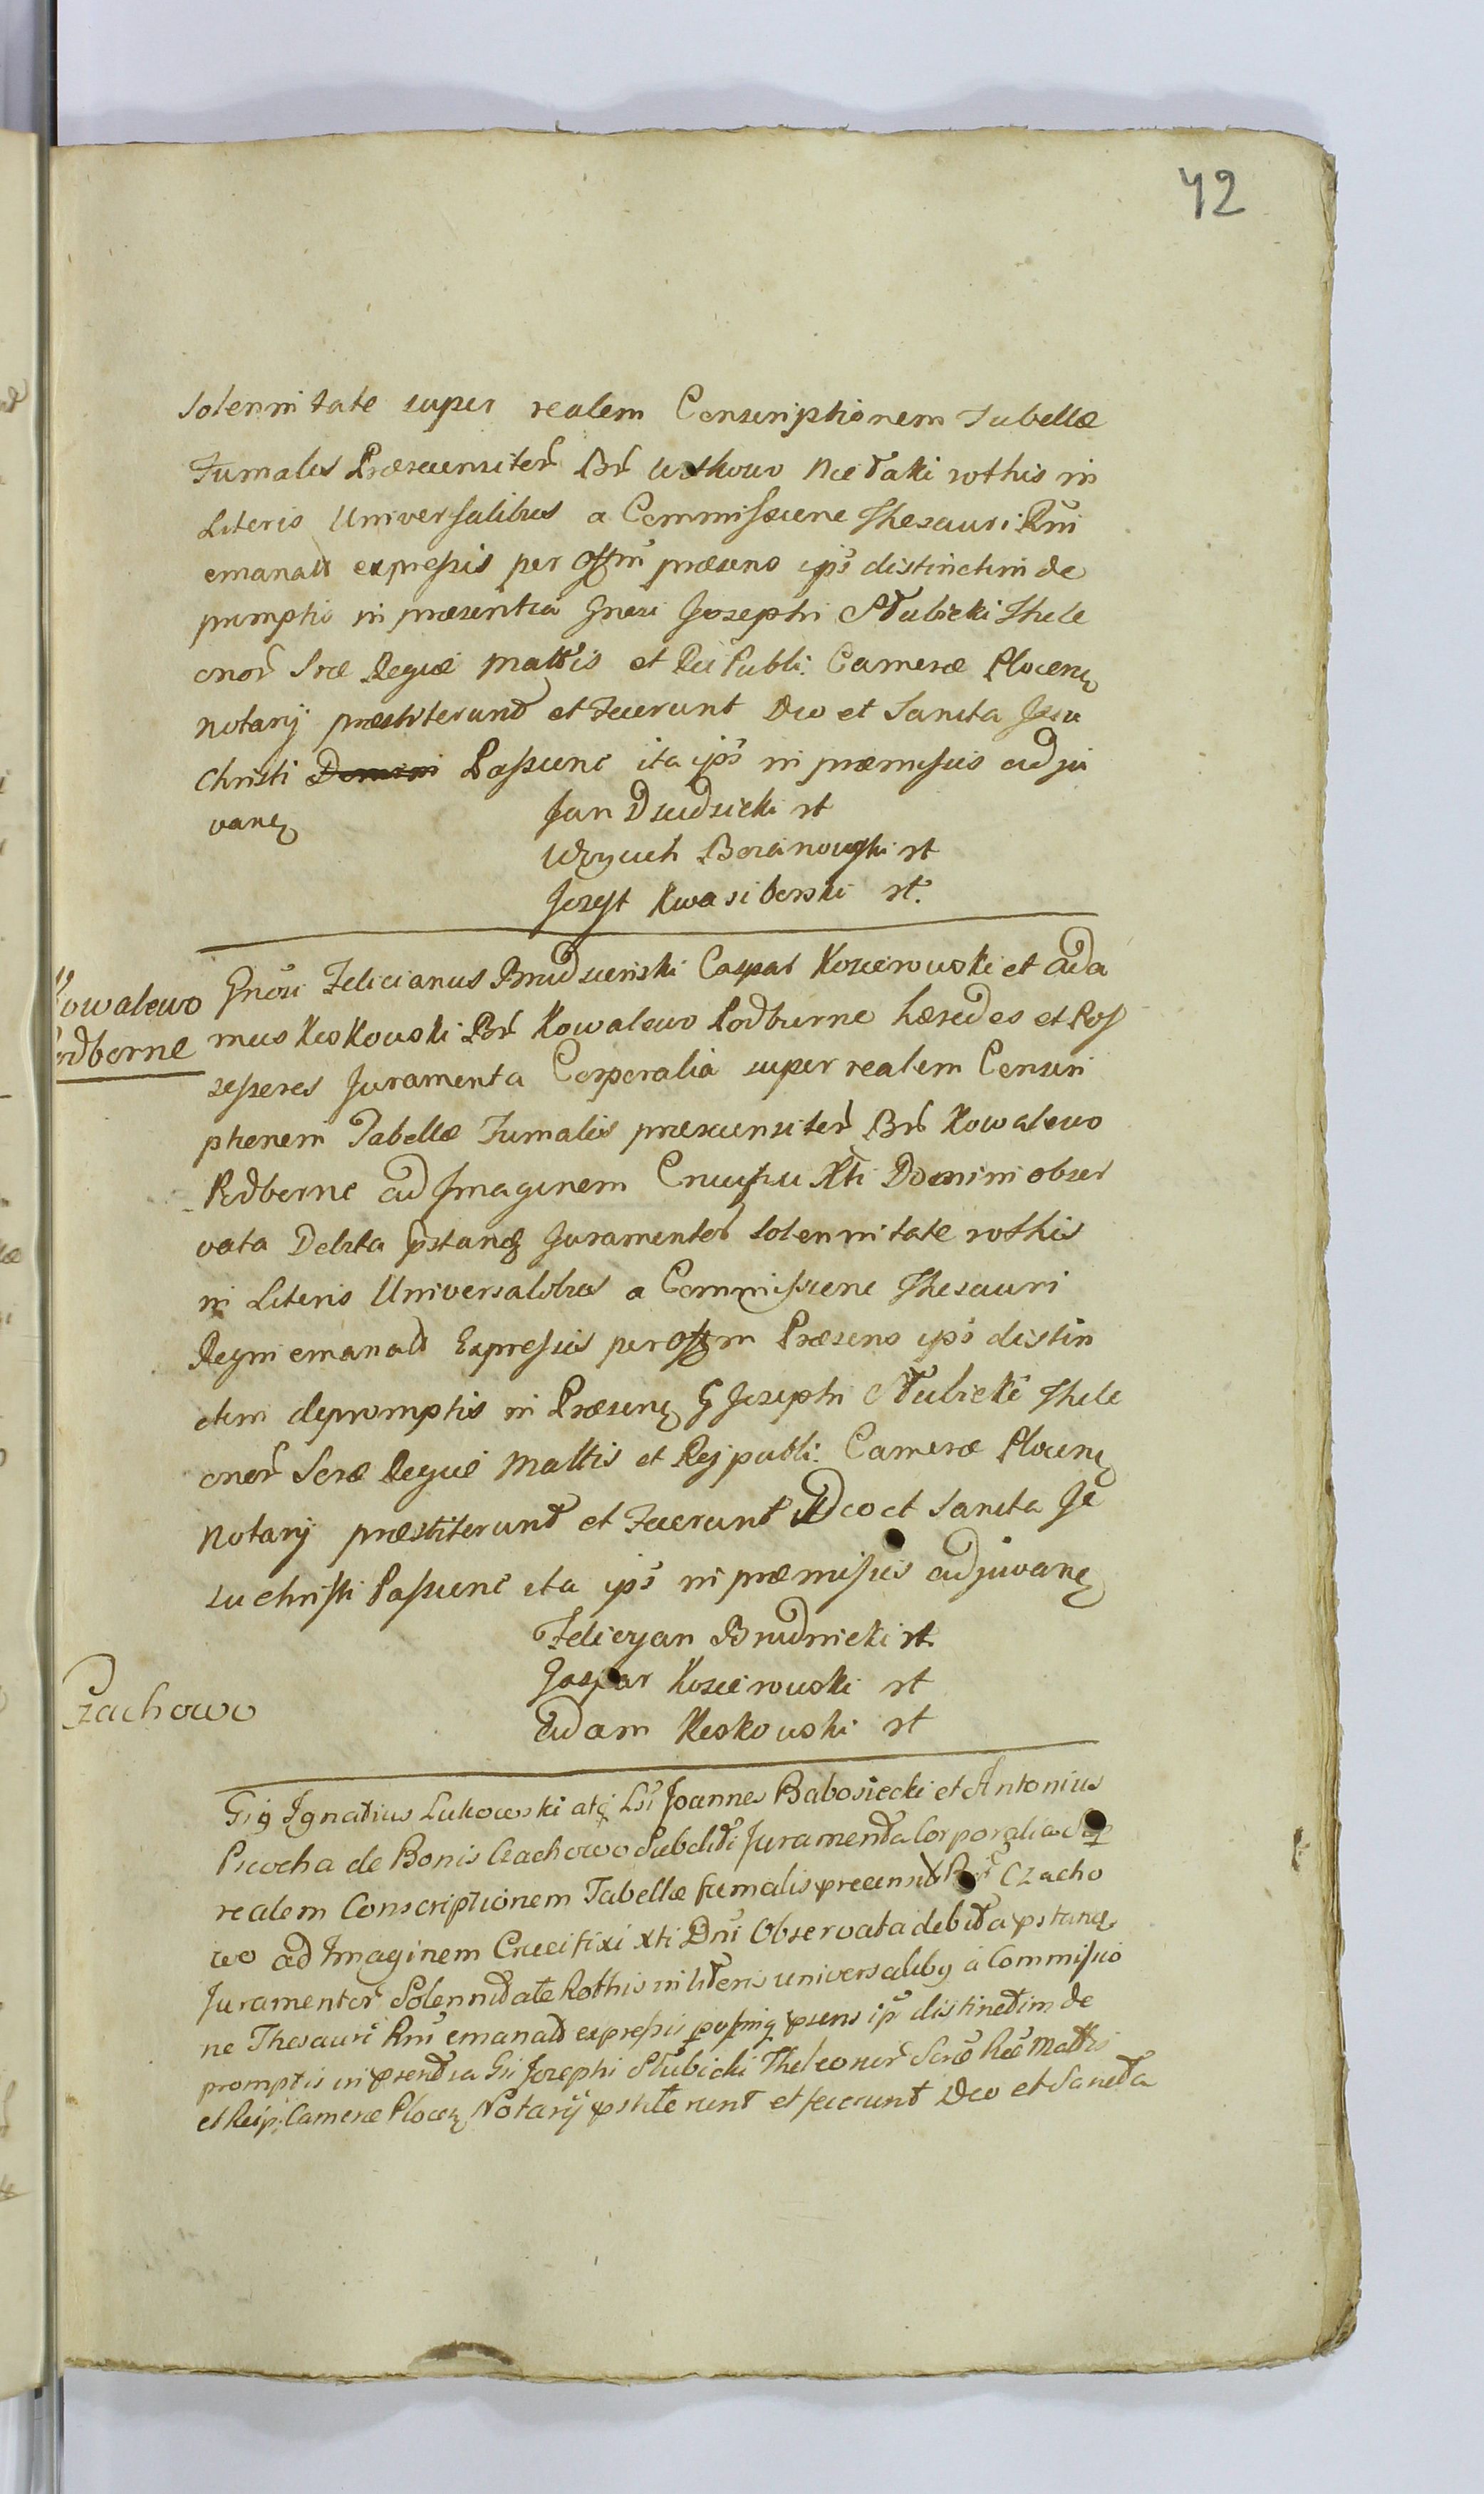 42
Solennitate super realem Conscriptionem Tabellæ
Fumalis Præscensiter Br Witkowo Nie Taki rothis in
Literis Universalibus a Commissione Thesauri Rni
emanatt expressis per Offm præsens ips distinctim de
promptis in præsentia Gnosi Josephi Stubicki Thele
onor Sræ Regiæ Mattis et Rei Publi: Cameræ Plocen
notarij præstiterunt et Fecerunt Deo et Sancta Jesu
Christi Domini Passione ita ips in præmissis adju
van
Jan Dzudzicki rt
Woycieh Boianowski rt
Jozeff Kwasiborski rt.
Kowalewo
Podborne
Gnosi Felicianus Brudzienski Caspar Koscierowski et Ada
mus Keskowski Br Kowalewo Podburne hæredes et Pos
sessores Juramenta Corporalia super realem Conscri
ptionem Tabellæ Fumalis præscensiter Br Kowalewo
Podborne ad Imaginem Crucifixi Xti Domini obser
vata Debita pstand Juramentor Solennitate rothis
in Literis Universalibus a Commissione Thesauri
Regni emanatt Expressis per Offm Præsens ips distin
ctim depromptis in Præsen G Josephi Stubicki Thele
onor Scræ Regiæ Mattis et Rejpubli: Cameræ Plocen
Notarij præstiterunt et Fecerunt Deo et Sancta Je
su Christi Passione ita ips in præmissis adjuvan
Felicyan Brudnicki rt.
Gaspar Koscierowski rt
Adam Keskowski rt
Czachowo
Gig Ignatius Lukowski atq Lsi Joannes Babosiecki et Antonius
Piwocha de Bonis Czachowo Subditi Juramenta Corporalia Sup
realem Conscriptionem Tabellæ fumalis precensit Br Czacho
wo ad Imaginem Crucifixi xti Dni Observata debita pstand
Juramentor Solennitate Rothis in literis universalibg a Commissio
ne Thesauri Rni emanatt expressis p offing psens ips distinctim de
promptis in psentia Gsi Josephi Stubicki Theleonor Scræ Reæ Mattis
et Reip: Cameræ Plocen Notarij pstiterunt et fecerunt Deo et Sancta